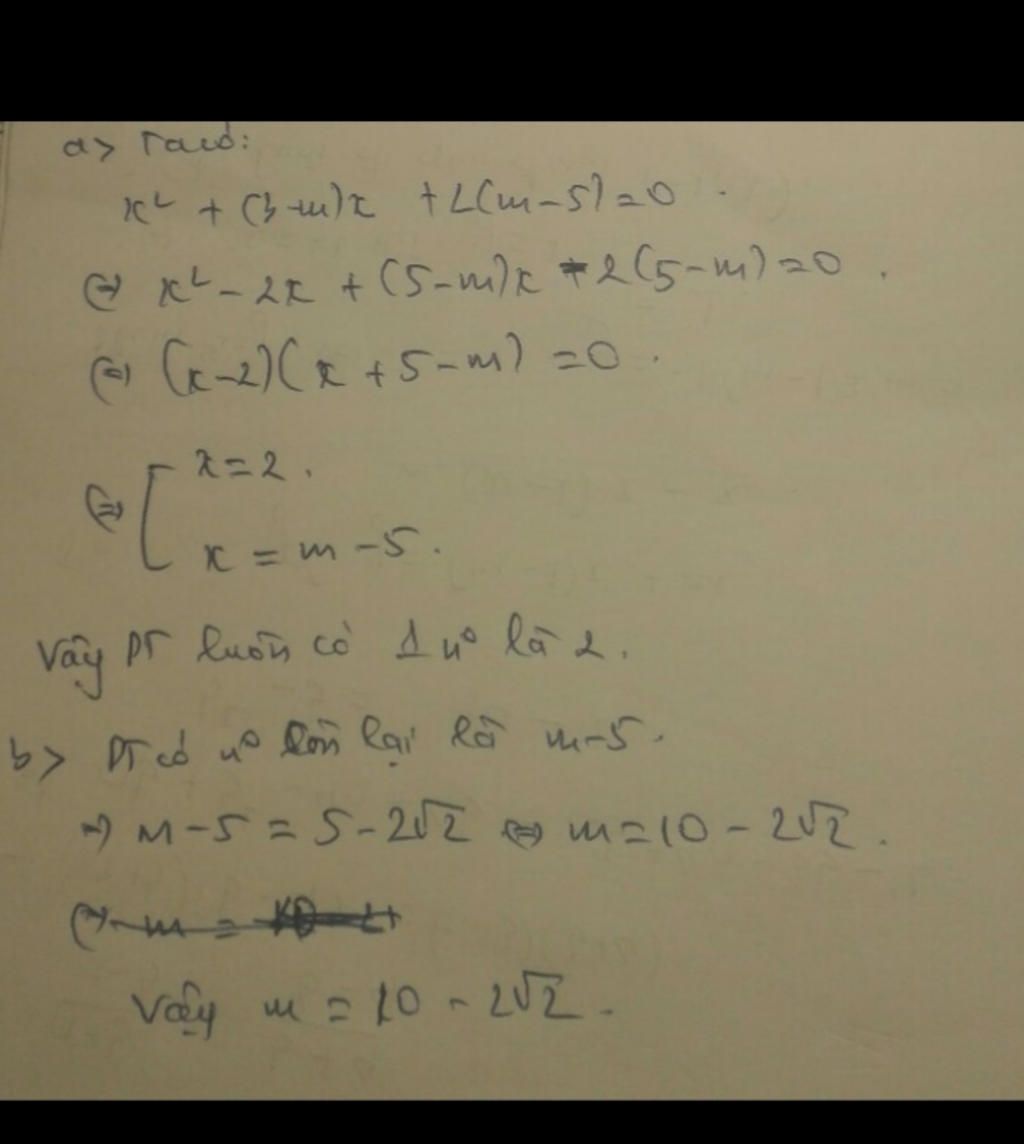 a> Ta có:
x² + (3-m)x + 2(m-5)=0.
⇔ x² - 2x + (5-m)x - 2(5-m)=0.
⇔ (x-2)(x+5-m) =0.
⇔ [ x=2.
x = m-5.
Vậy PT luôn có 1 n° là 2.
b> PT có n° còn lại là m-5.
⇒ m-5 = 5-2√2 ⇔ m=10-2√2.
Vậy m = 10 - 2√2.